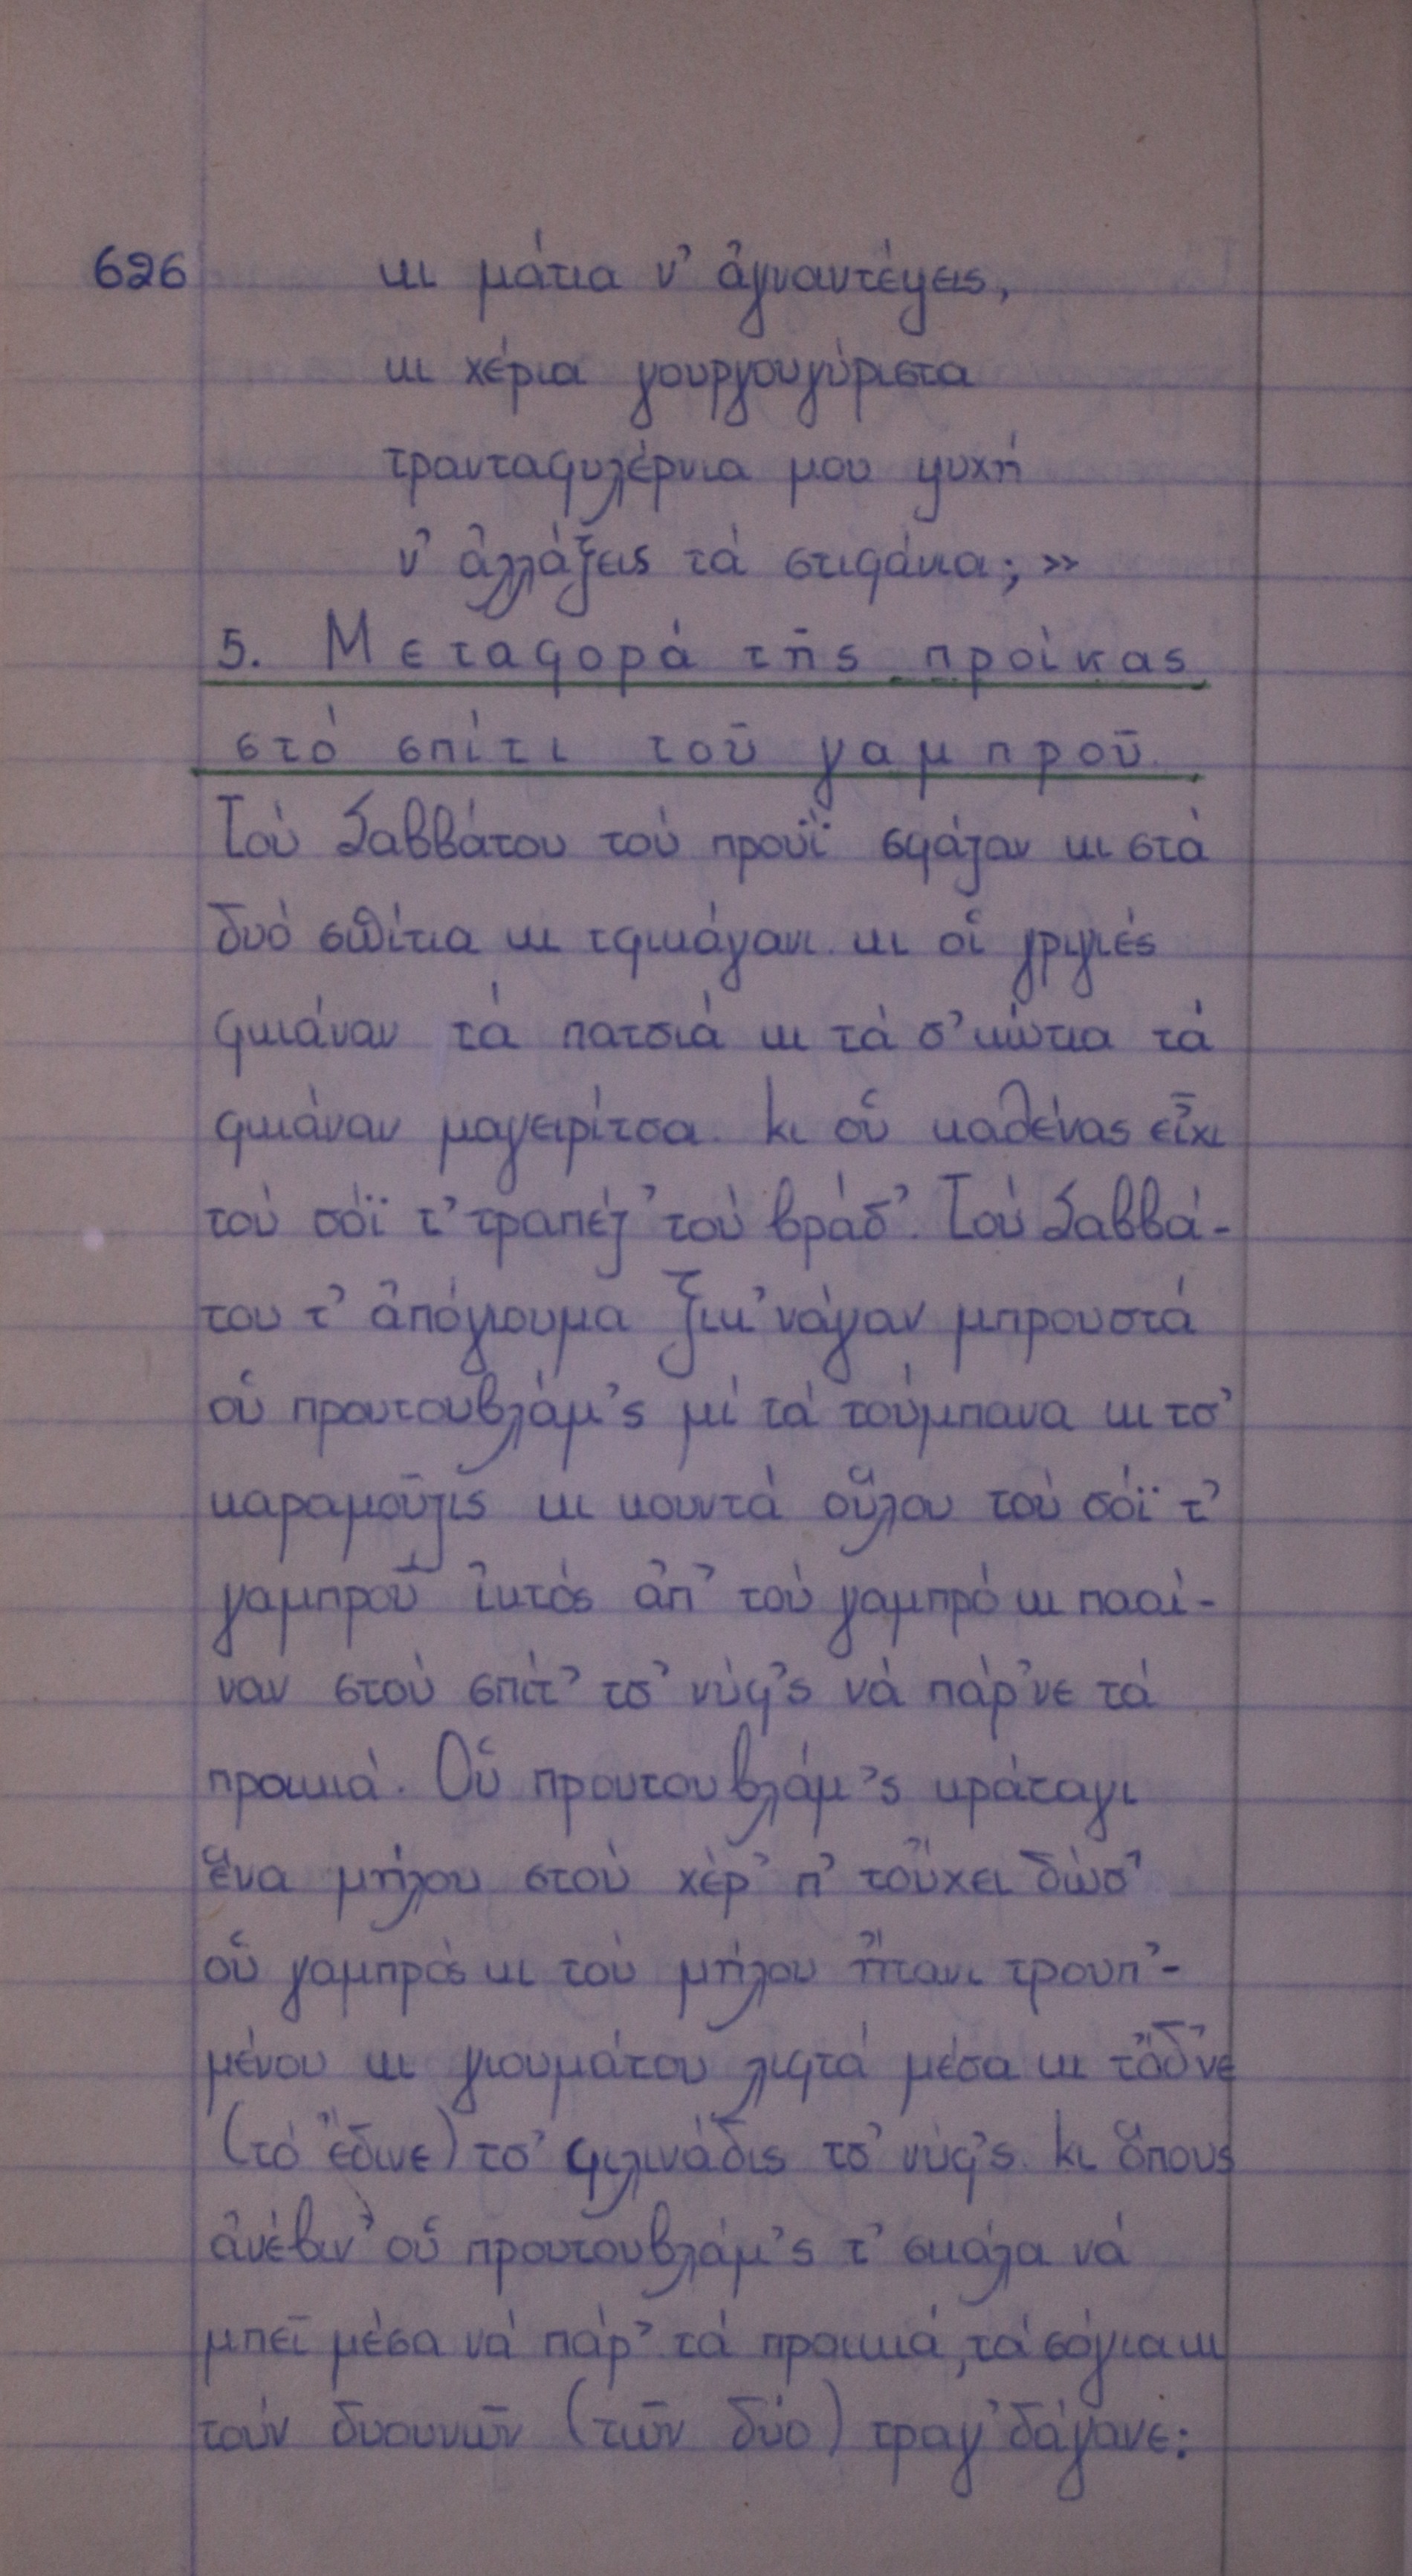 626 κι μάτια ν' ἀγναντέψεις,
κι χέρια γουργουγύριστα
τρανταφυλένια μου ψυχή
ν' ἀλλάξεις τά στιφάνια; »
5. Μεταφορά τῆς προίκας
στό σπίτι τοῦ γαμπροῦ.
Τού Σαββάτου τού προυΐ σφάζαν κι στά
δυό σπίτια κι τφικάγανι κι οἱ γριγιές
φκιάναν τά πατσιά κι τά σ'κώτια τά
φκιάναν μαγειρίτσα. Κι οὑ καθένας εἶχι
τού σόϊ τ' τραπέζ' τού βράδ'. Τού Σαββά-
του τ' ἀπόγιουμα ξικ'νάγαν μπρουστά
οὑ προυτουβλάμ'ς μί τά τούμπανα κι τσ'
καραμοῦζις κι κουντά οὕλου τού σόϊ τ'
γαμπροῦ ἰκτός ἀπ' τού γαμπρό κι πααί-
ναν στού σπίτ' τσ' νύφ'ς νά πάρ'νε τά
προικιά. Οὑ προυτουβλάμ'ς κράταγι
ἕνα μήλου στού χέρ' π' τοὔχει δώσ'
οὑ γαμπρός κι τού μήλου ἤτανι τρουπ'-
μένου κι γιουμάτου λιφτά μέσα κι τὄδ'νε
(τό ἔδινε) τσ' φιλινάδις τσ' νύφ'ς. Κι ὅπους
ἀνέβιν' οὑ προυτουβλάμ'ς τ' σκάλα νά
μπεῖ μέσα νά πάρ' τά προικιά, τά σόγια κι
τούν δυουνῶν (τῶν δύο) τραγ'δάγανε: